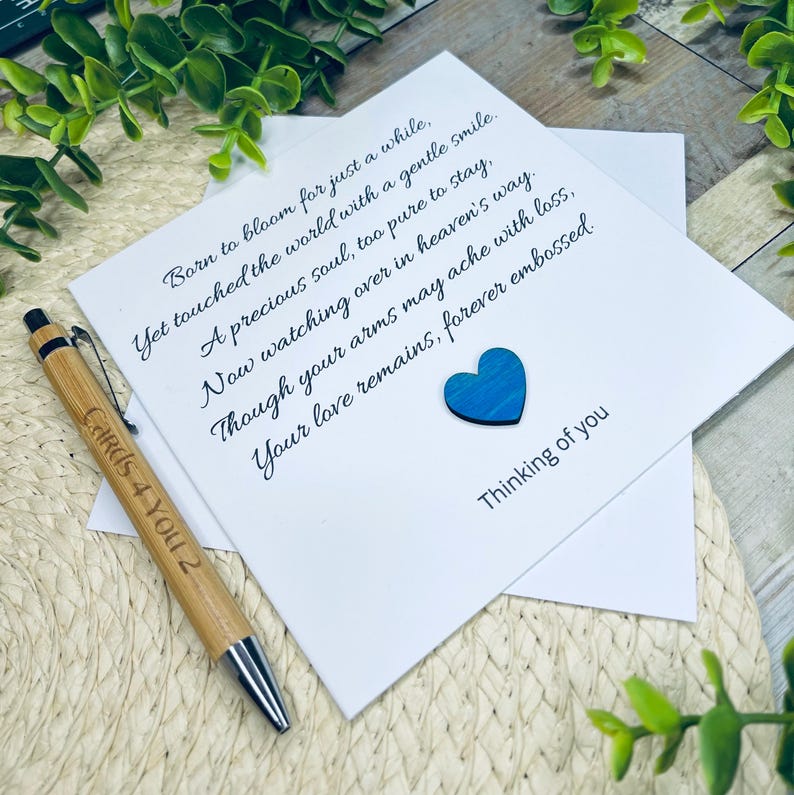 Born to bloom for just a while,
Yet touched the world with a gentle smile.
A precious soul, too pure to stay,
Now watching over in heaven's way.
Though your arms may ache with loss,
Your love remains, forever embossed.
Thinking of you
Cards 4 You 2